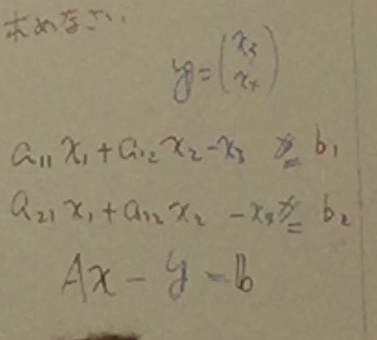 求めなさい.
y = (x₃ x₄)
a₁₁x₁ + a₁₂x₂ - x₃ = b₁
a₂₁x₁ + a₂₂x₂ - x₄ = b₂
Ax - y = b